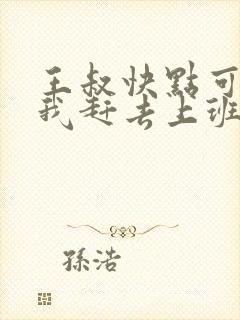 王叔快點可
我赶去上班
孫浩